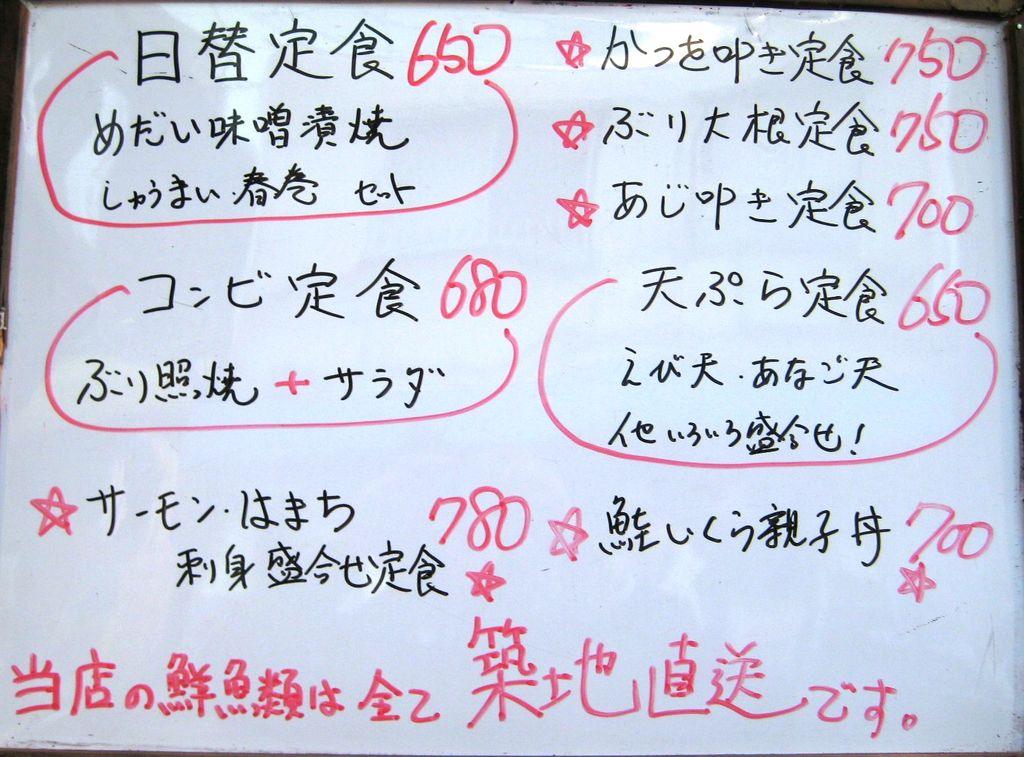 日替定食 650
めだい味噌漬焼
しゅうまい・春巻 セット
コンビ定食 680
ぶり照焼 + サラダ
☆サーモン・はまち 780
刺身盛合せ定食☆
☆かつを叩き定食 750
☆ぶり大根定食 750
☆あじ叩き定食 700
天ぷら定食 650
えび天・あなご天
他いろいろ盛合せ!
☆鮭いくら親子丼 700☆
当店の鮮魚類は全て築地直送です。